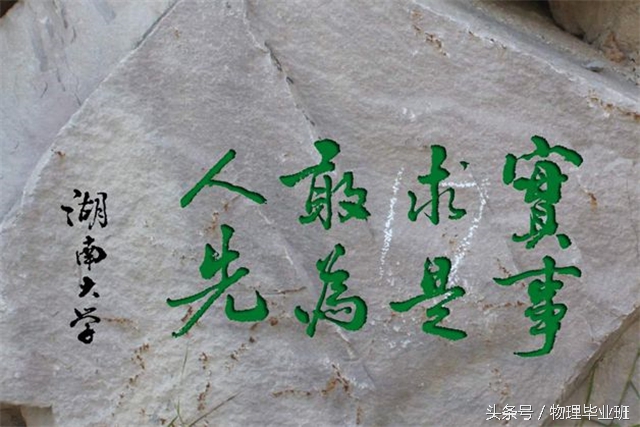 實事
求是
敢為
人先
湖南大学
头条号／物理毕业班